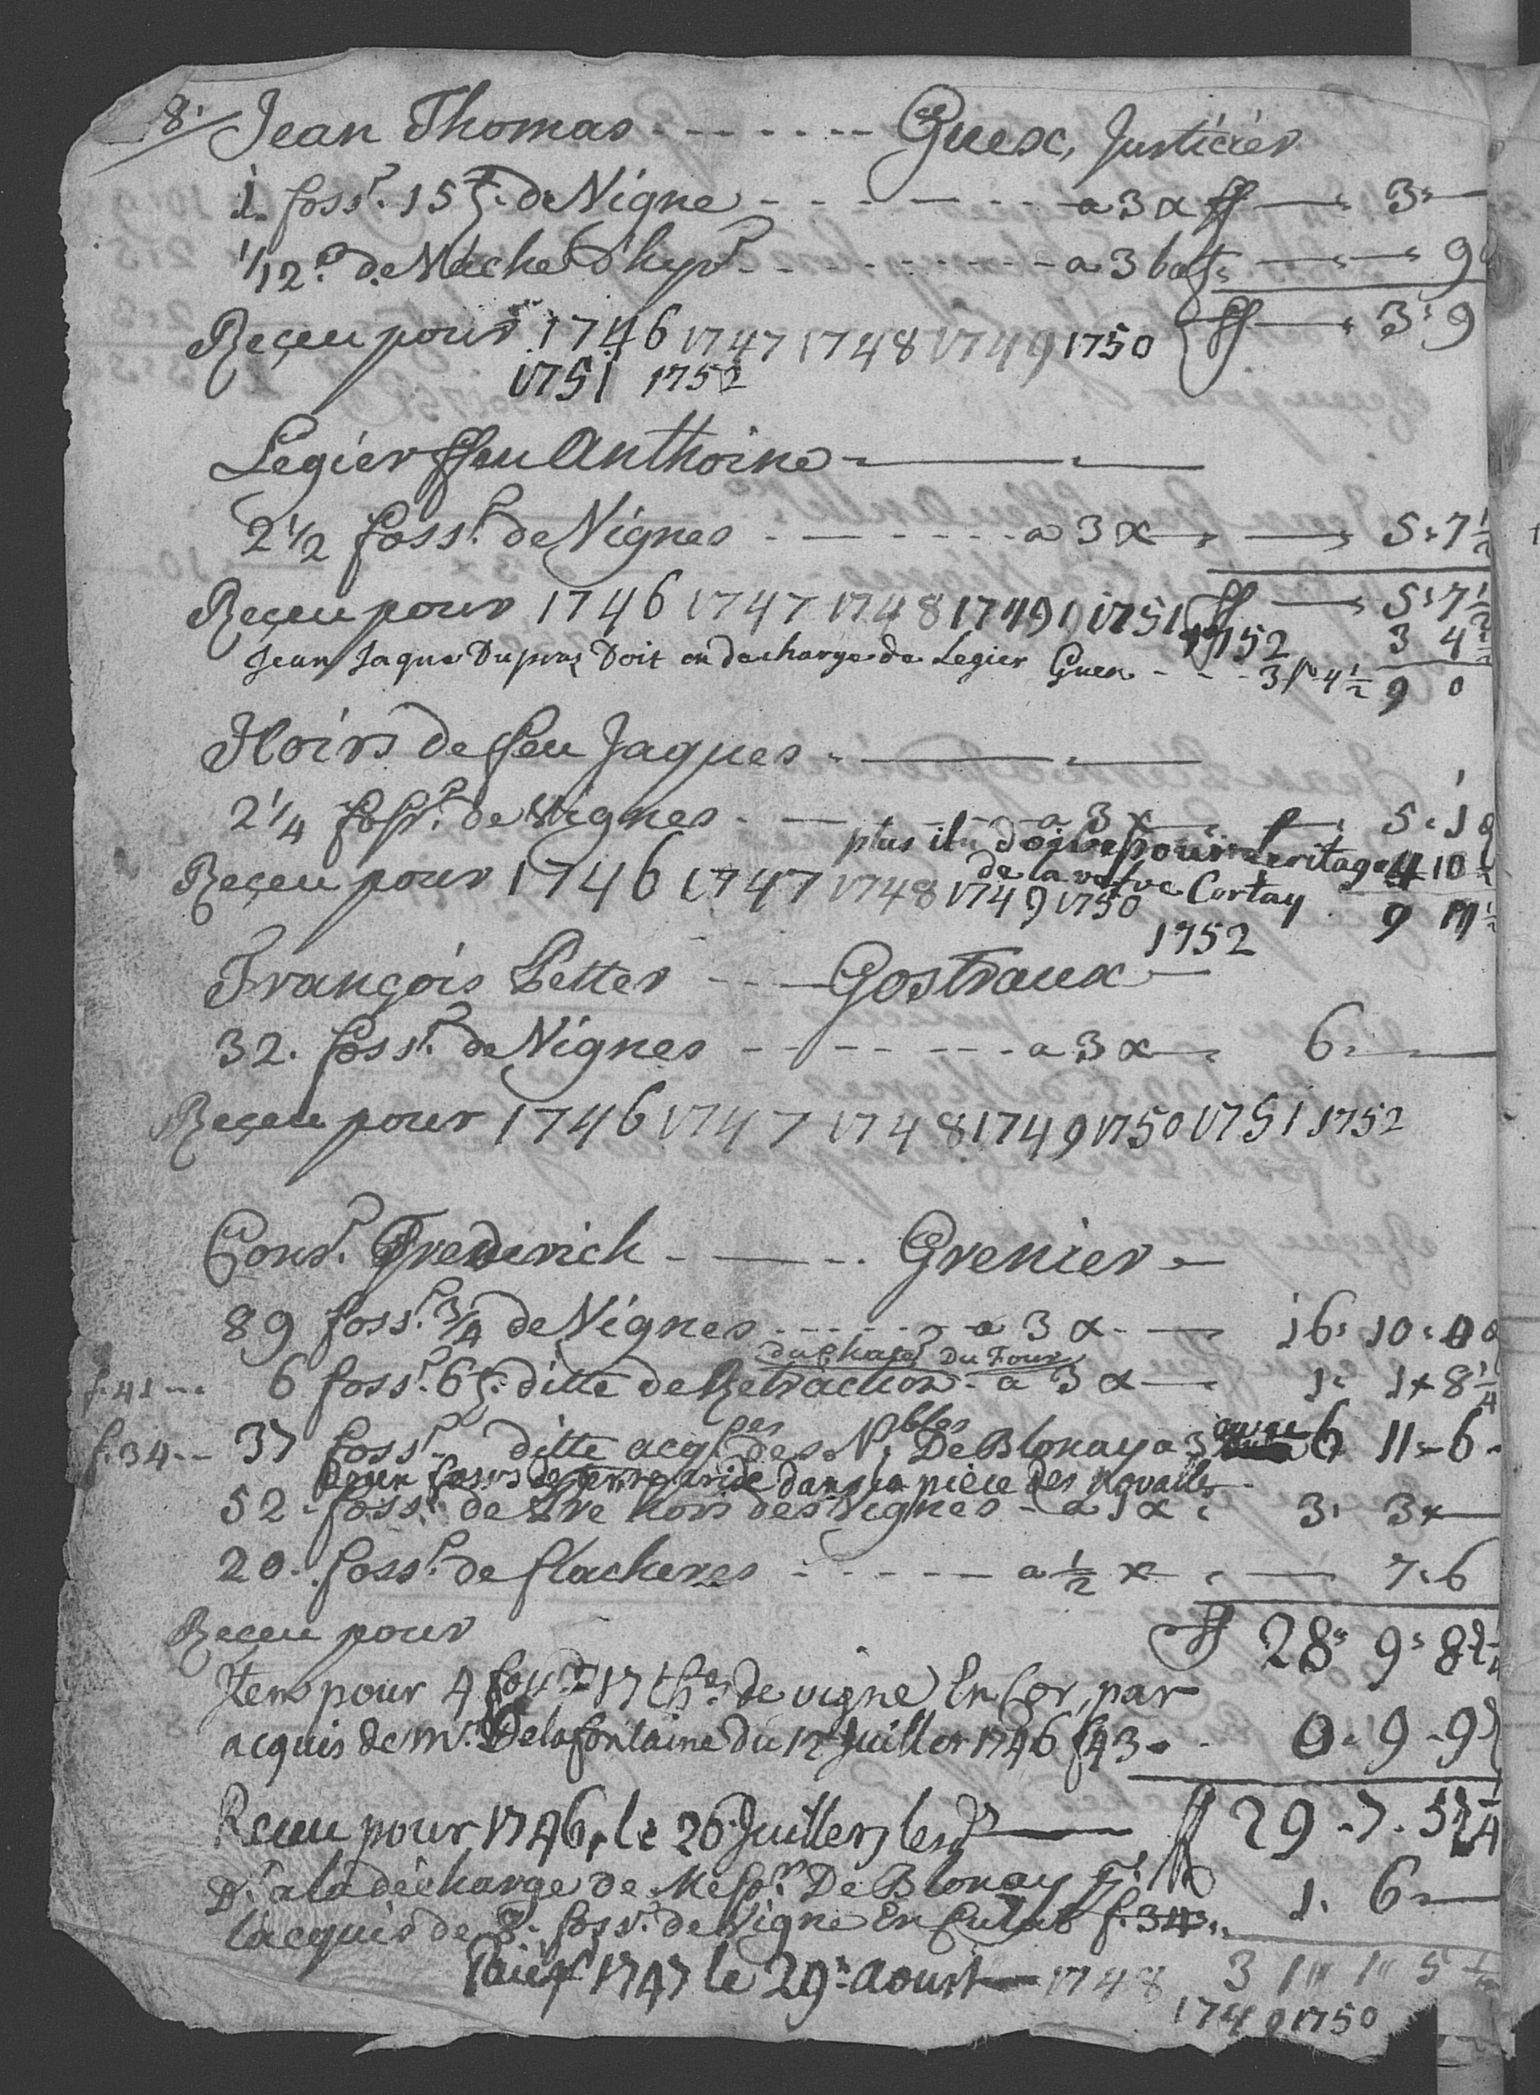 8. Jean Thomas - - - - - - Guex, Justicier
1. foss.r 15 t. de Vigne - - - - - a 3 x ff — 3 " —
1/12.e de Vache d'hyp.r - - - - - - a 3 bat. — — 9
Reçeu pour 1746 1747 1748 1749 1750 ff — 3 " 9
1751 1752
Legier ffeu Anthoine - —
2 1/2 foss.r de Vignes - - - - - a 3 x — — 5 " 7 1/2
Reçeu pour 1746 1747 1748 1749 1751 ff — 5 " 7 1/2
1752 3 4 1/2
Jean Jaque Dupraz Doit en decharge de Legier Guex - - - 3 s 4 1/2 9 0
Hoirs de ffeu Jaques - —
2 1/4 foss.r de Vignes - — a 3 x — 5 "
plus ils doive pour leritage 4 10 1/2
Reçeu pour 1746 1747 1748 1749 1750
de la vefve Cortay 9 11 1/2
1752
François Petter - - - Gostraux —
32. foss.r de Vignes - - - - - - a 3 x — 6 " —
Reçeu pour 1746 1747 1748 1749 1750 1751 1752
Cons.r Frederich - — - . Grenier —
89 foss.r 3/4 de Vignes - - - - - a 3 x - — 16 " 10 "
du Four
f. 41 - - . 6 foss.r 6 t. ditte de Retraction - a 3 x — 1 " 1 " 8 1/4
f. 34 - - 37 foss.r ditte acq. des N.bles De Blonay a 3 6 11 " 6 -
dans la pièce des
52 - foss.r de hors des Vignes - a 1 x 3 " 3 " —
20 - foss.r de flacheres - - - - - a 1/2 x — 7 " 6
Reçeu pour ff 28 " 9 " 8
Item pour 4 foss.r 17 th.es de vigne En Cor, par
acquis de M.r Delafontaine du 12 Juillet 1746 f 43 - - 0 " 9 - 9
Receu pour 1746, le 26 Juillet — ff 29 - 7 - 5 1/4
a la decharge de Mess.rs De Blonay p.r 1 " 6 " —
l'acquis de 8. foss.r de Vigne En f. 34.
1747 le 29.e Aoust — 1748 3 1 " 1 " 5
1749 1750